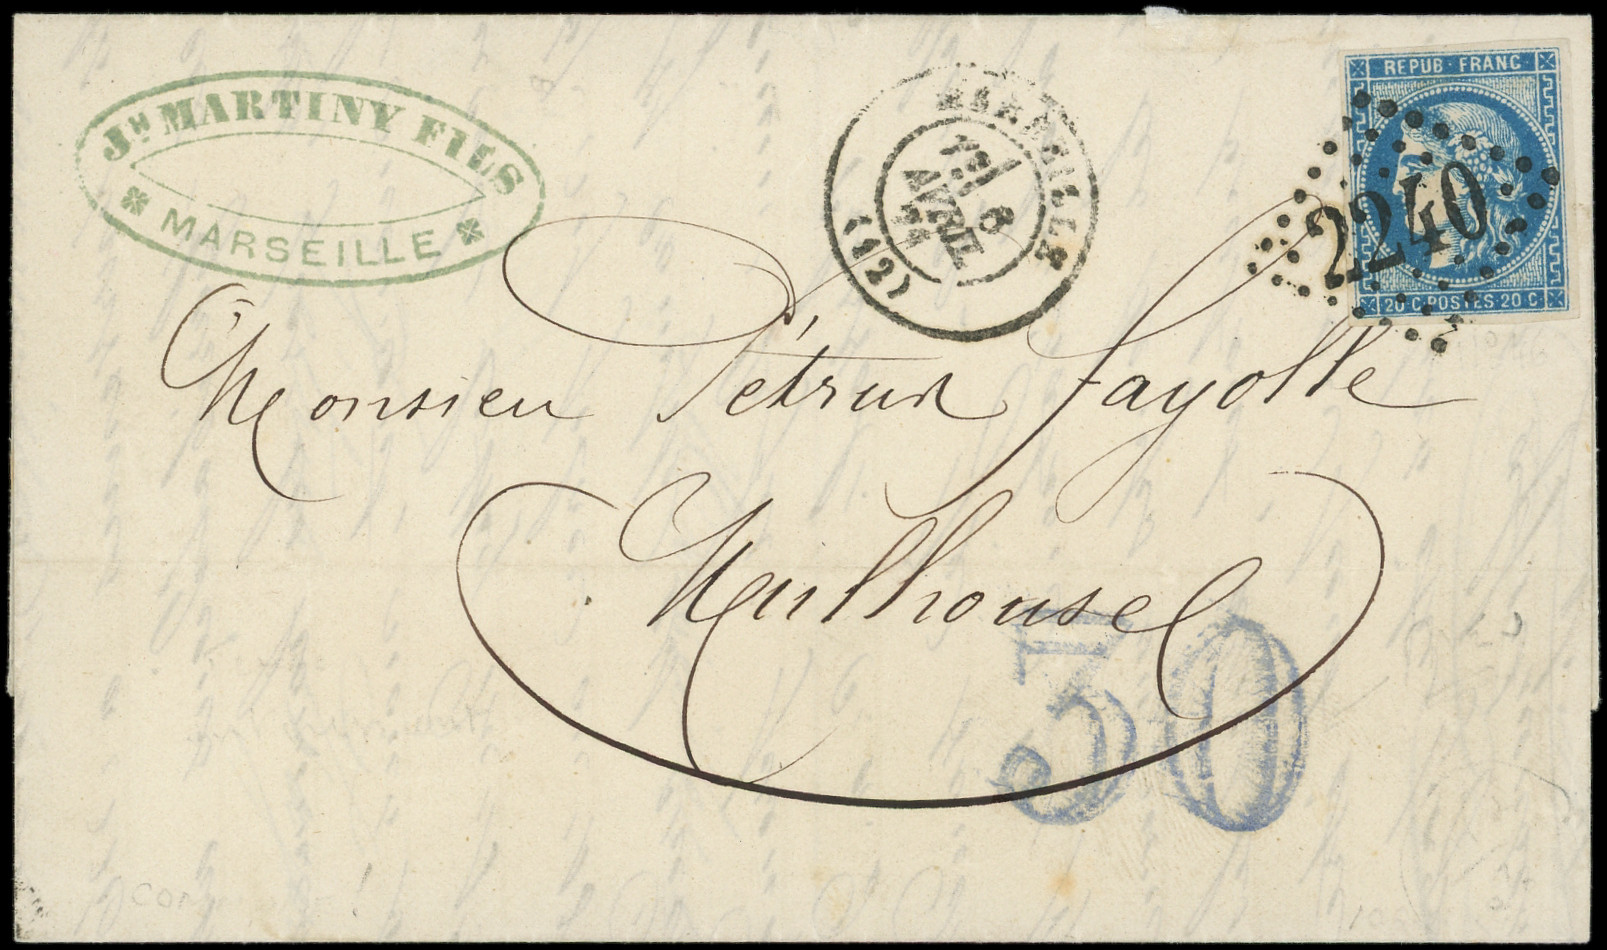 Jh MARTINY FILS
MARSEILLE
MARSEILLE
6
AVRIL
71
(12)
REPUB · FRANC
2240
20 C · POSTES · 20 C
Monsieu Pétrus Fayolle
Mulhouse
30